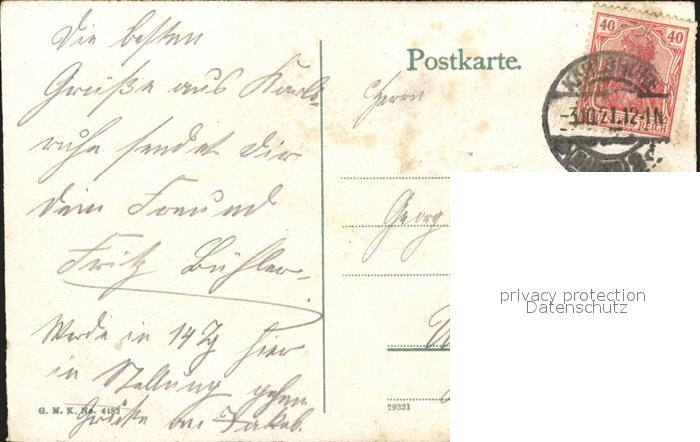 Die besten
Grüße aus Karls-
ruhe sendet Dir
dein Freund
Fritz Bühler.
Werde in 14 Tg hier
in Stellung gehen
Grüße an Jakob.
G. M. K. No. 4483
Postkarte.
Herrn
Georg
29331
40 40
REICH
-3.10.21.12-1N
privacy protection
Datenschutz